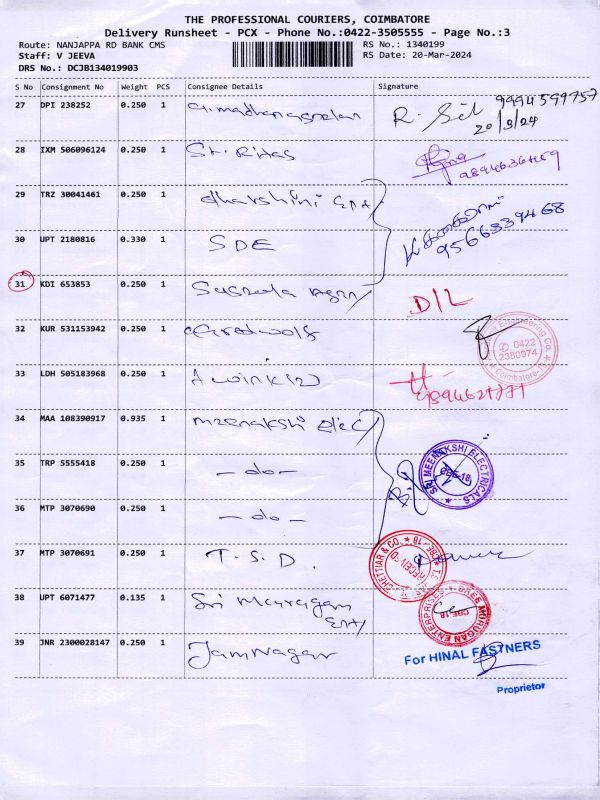 THE PROFESSIONAL COURIERS, COIMBATORE
Delivery Runsheet - PCX - Phone No.:0422-3505555 - Page No.:3
Route: NANJAPPA RD BANK CMS RS No.: 1340199
Staff: V JEEVA RS Date: 20-Mar-2024
DRS No.: DCJB134019903
S No Consignment No Weight PCS Consignee Details Signature
27 DPI 238252 0.250 1 R. 9994599757
20/3/24
28 IXM 506096124 0.250 1
29 TRZ 30041461 0.250 1 dharshini
30 UPT 2180816 0.330 1 SDE 9566339468
31 KDI 653853 0.250 1 D/L
32 KUR 531153942 0.250 1
Engineering Co.
0422
2380974
Coimbatore-18
33 LDH 505183968 0.250 1
34 MAA 108390917 0.935 1 meenakshi elec
35 TRP 5555418 0.250 1 - do -
SRI MEENAKSHI ELECTRICALS
CBE-18
36 MTP 3070690 0.250 1 - do -
37 MTP 3070691 0.250 1 T. S. D.
CHETTIAR & CO. CBE-18
38 UPT 6071477 0.135 1 Sri Murugan
SREE MURUGAN ENTERPRISES
CBE-18
39 JNR 2300028147 0.250 1 Jamnagar
For HINAL FASTNERS
Proprietor